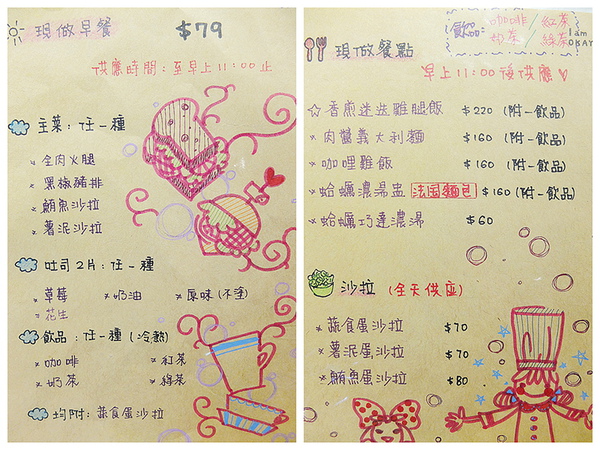 現做早餐 $79
供應時間:至早上11:00止
主菜:任一種
全肉火腿
黑椒豬排
鮪魚沙拉
薯泥沙拉
吐司2片:任一種
草莓 奶油 原味(不塗)
花生
飲品:任一種(冷熱)
咖啡 紅茶
奶茶 綠茶
均附:蔬食蛋沙拉
飲品: 咖啡/紅茶
奶茶/綠茶
I am OKAY
現做餐點
早上11:00後供應
香煎迷迭雞腿飯 $220(附一飲品)
肉醬義大利麵 $160(附一飲品)
咖哩雞飯 $160(附一飲品)
蛤蠣濃湯盅 法国麵包 $160(附一飲品)
蛤蠣巧達濃湯 $60
沙拉(全天供应)
蔬食蛋沙拉 $70
薯泥蛋沙拉 $70
鮪魚蛋沙拉 $80